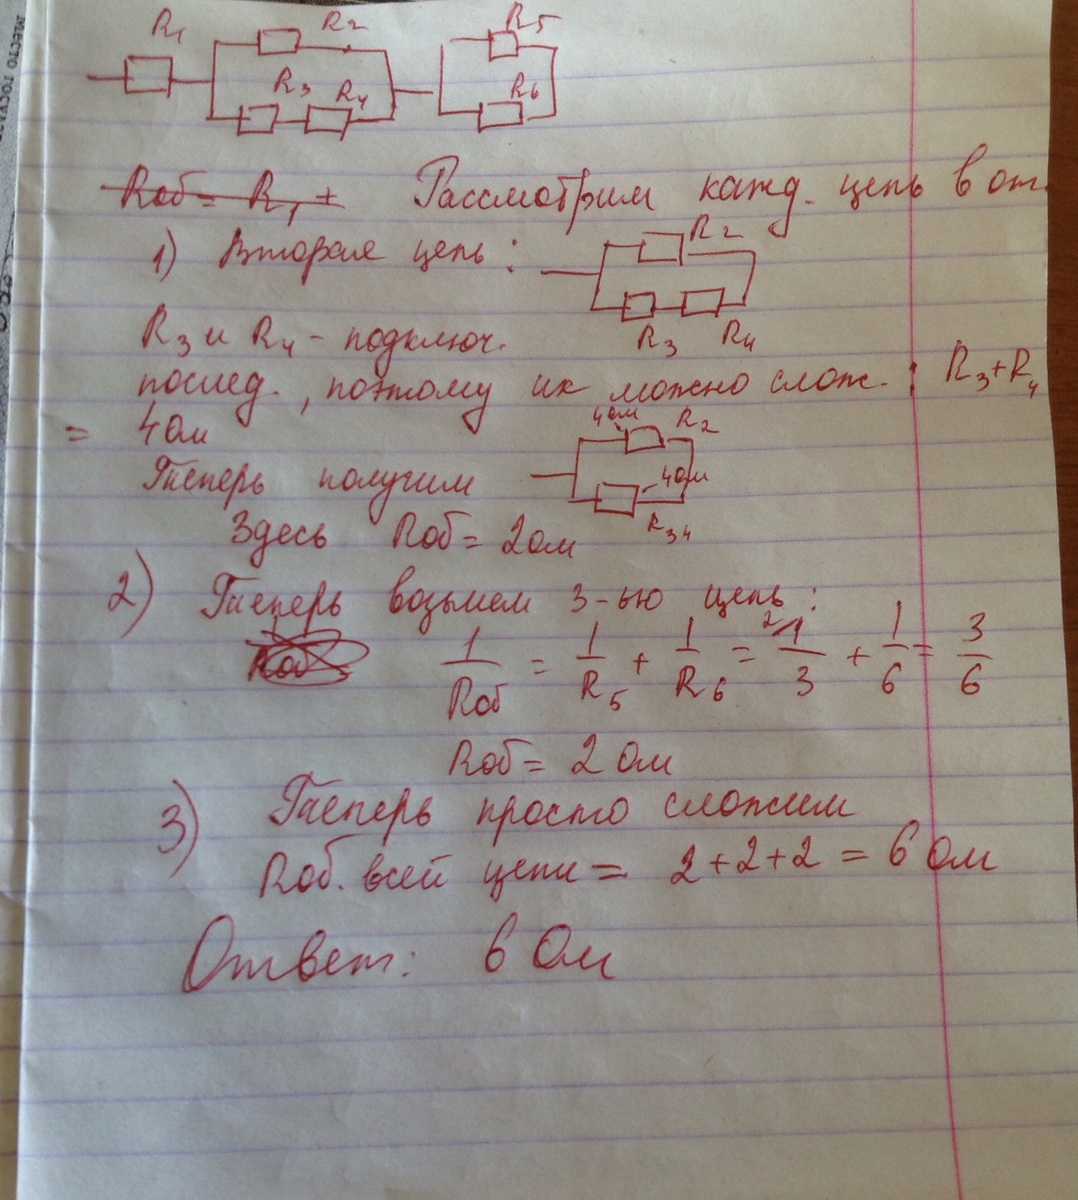 R1 R2 R5
R3 R4 R6
Rоб = R1 + Рассмотрим кажд. цепь в от.
1) Вторая цепь: R2
R3 и R4 - подключ. R3 R4
послед., поэтому их можно слож. : R3+R4
= 4 Ом
4 Ом R2
Теперь получим 4 Ом
R34
Здесь Rоб = 2 Ом
2) Теперь возьмем 3-ью цепь:
Rоб 1/Rоб = 1/R5 + 1/R6 = 2\1/3 + 1/6 = 3/6
Rоб = 2 Ом
3) Теперь просто сложим
Rоб. всей цепи = 2+2+2 = 6 Ом
Ответ: 6 Ом